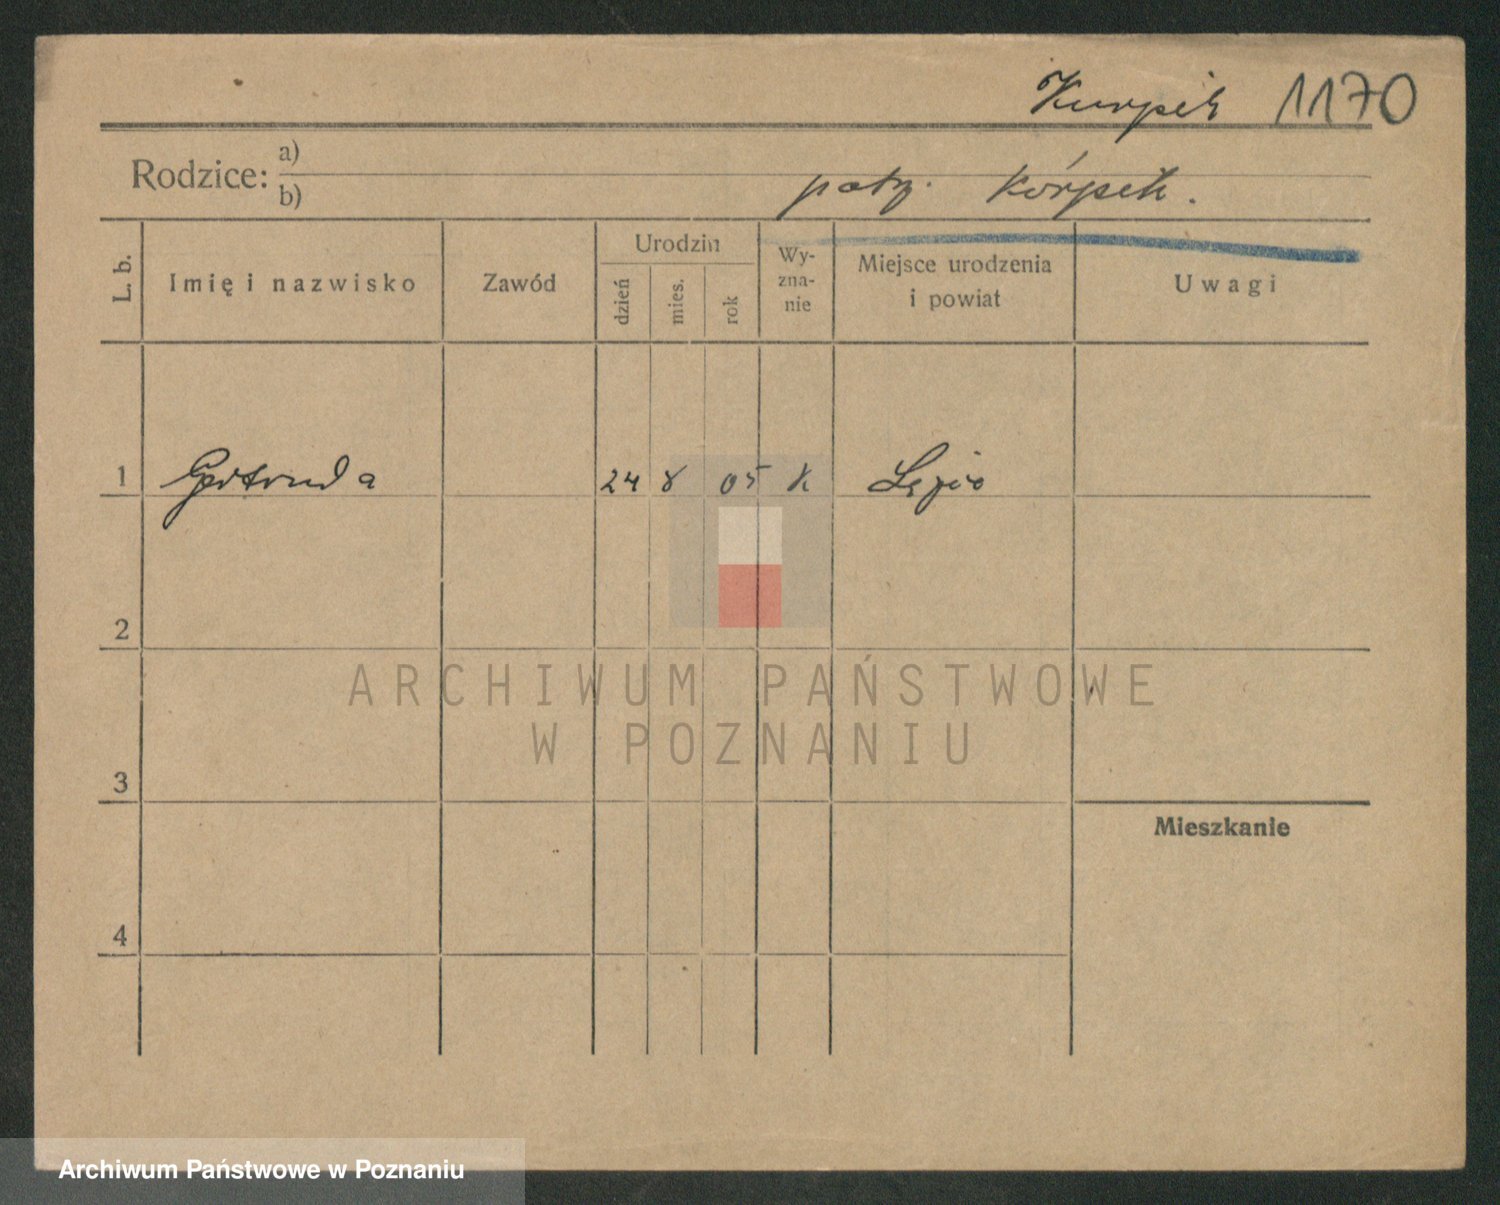 Kurpik 1170
Rodzice: a)
b)
patrz. Kórpik.
L. b. Imię i nazwisko Zawód Urodzin dzień mies. rok Wy-zna-nie Miejsce urodzenia i powiat Uwagi
1 Gertruda 24 8 05 K
2
ARCHIWUM PAŃSTWOWE
W POZNANIU
3
Mieszkanie
4
Archiwum Państwowe w Poznaniu